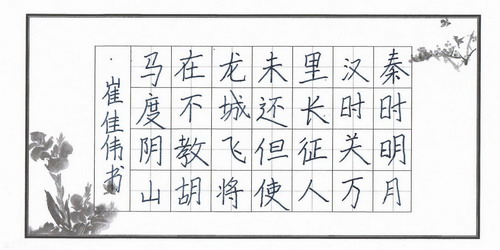 秦时明月
汉时关万
里长征人
未还但使
龙城飞将
在不教胡
马度阴山
崔佳伟书